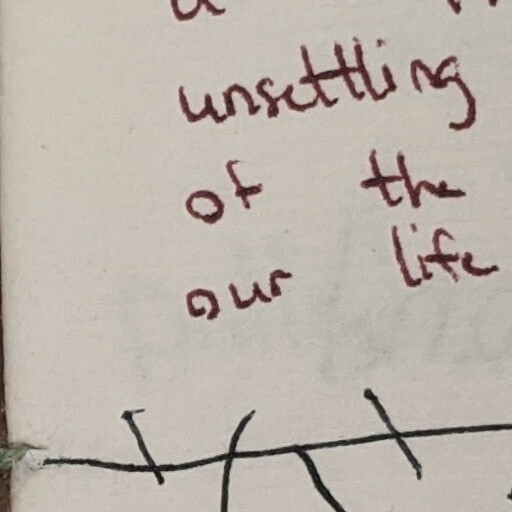 unsettling
of the
our life